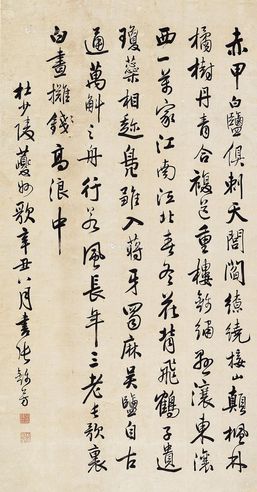 赤甲白鹽俱刺天閭閻繚繞接山巔楓林
橘樹丹青合複道重樓錦繡懸瀼東瀼
西一萬家江南江北春冬花背飛鶴子遺
瓊蘂相趁鳧雛入蔣牙蜀麻吳鹽自古
通萬斛之舟行若風長年三老長歌裏
白晝攤錢高浪中
杜少陵夔州歌辛丑八月書